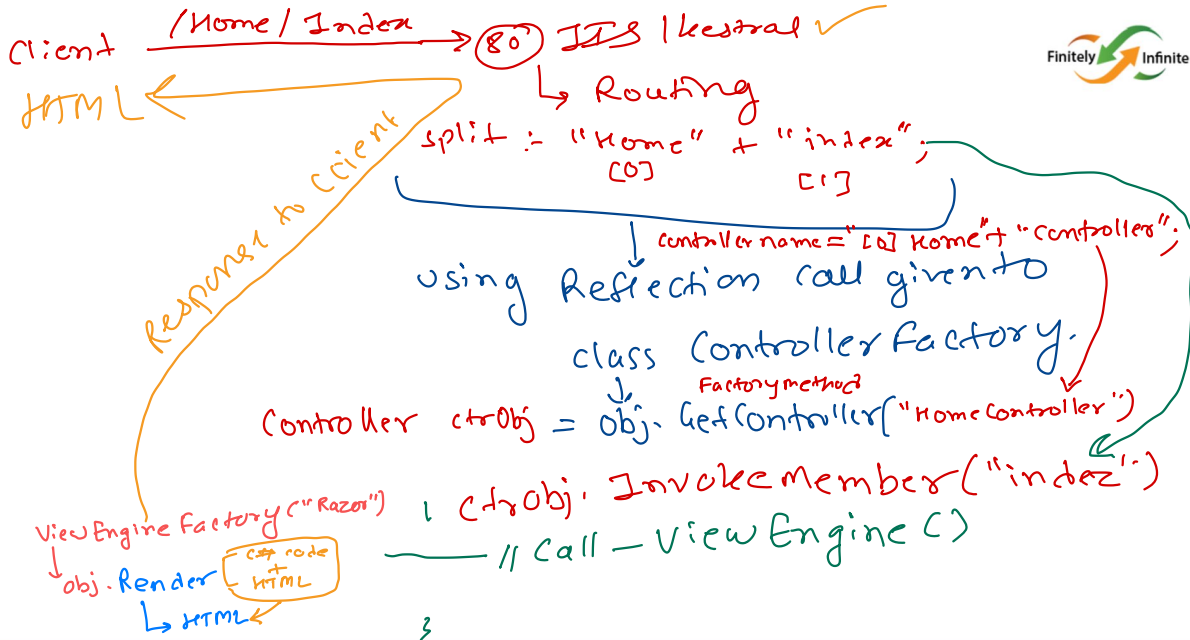 Client /Home/Index 80 IIS/kestral
Finitely Infinite
HTML
Routing
split :- "Home" + "index";
[0] [1]
Response to Client
controller name = "[0] Home" + "controller";
using Reflection call given to
class Controller Factory.
Factory method
Controller ctrObj = obj.GetController("HomeController")
ctrObj.InvokeMember("index")
ViewEngine Factory("Razor")
// Call - ViewEngine()
obj.Render
C# code
+
HTML
HTML
}